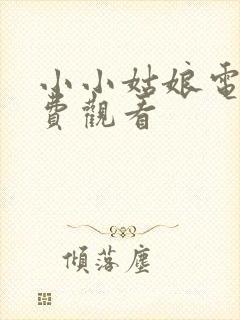 小小姑娘電
費觀看
傾落塵